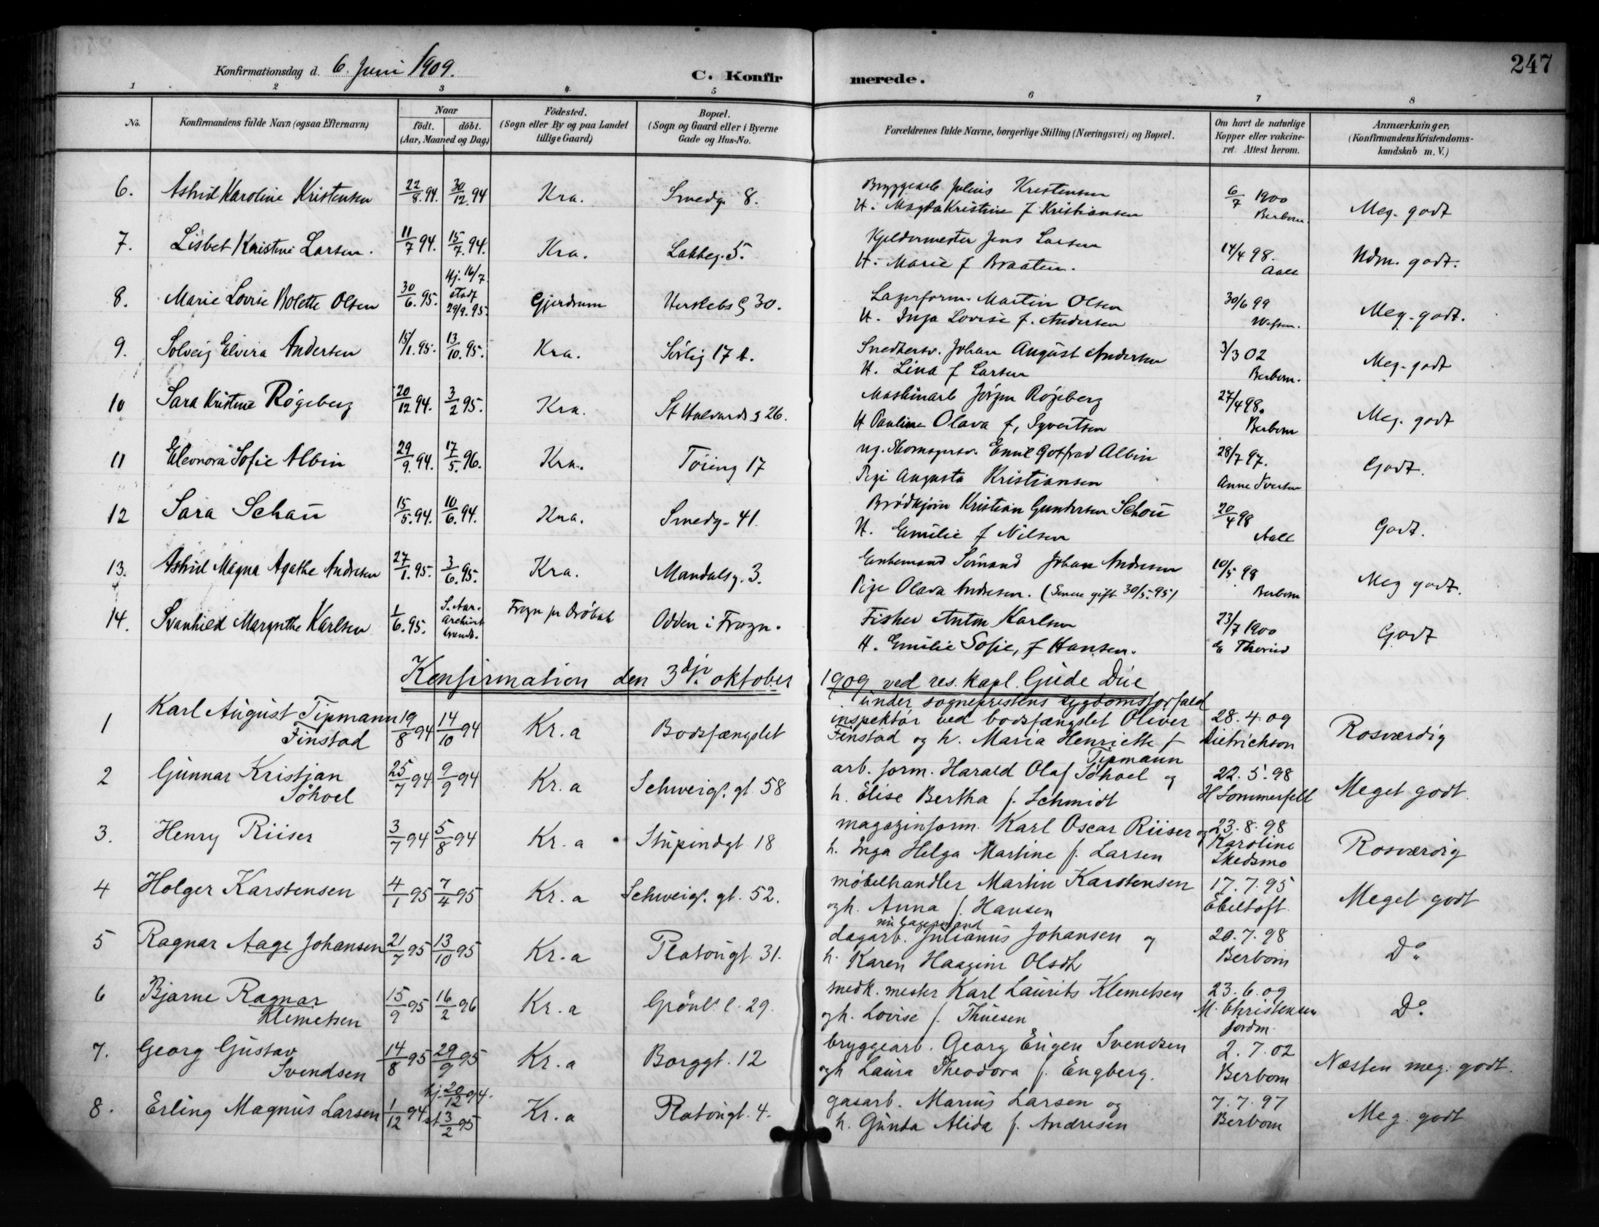 247
Konfirmationsdag d. 6. Juni 1909.
C. Konfirmerede.
1 2 3 4 5 6 7 8
No.
Konfirmandens fulde Navn (ogsaa Efternavn)
Naar
født. døbt.
(Aar, Maaned og Dag)
Fødested.
(Sogn eller By og paa Landet
tillige Gaard)
Bopæl.
(Sogn og Gaard eller i Byerne
Gade og Hus-No.
Forældrenes fulde Navne, borgerlige Stilling (Næringsvei) og Bopæl.
Om havt de naturlige
Kopper eller vakcine-
ret. Attest herom.
Anmærkninger.
(Konfirmandens Kristendoms-
kundskab m. V.)
6. Astrid Karoline Kristensen 22/8.94. 30/12.94 Kra. Smedg. 8. Bryggearb. Julius Kristensen 6/7 1900 Meg. godt
H. Magda Kristine f Kristiansen Berbom
7. Lisbet Kristine Larsen. 11/7 94. 15/7.94. Kra. Lakkeg. 5. Kjeldermester Jens Larsen 14/4 98. Ndm. godt.
H. Marie f Braaten. Aall
8. Marie Lovise Bolette Olsen 30/6.95. Hj. 16/7 Gjerdrum Herslebs g 30. Lagerform. Martin Olsen 30/6 99 Meg. godt.
29/9.95. H. Inga Lovise f. Andersen
9. Solveig Elvira Andersen 15/1.95. 13/10.95. Kra. Sørlig 17 b. Snedkersv. Johan August Andersen 3/3 02 Meg. godt
H. Lina f Larsen Berbom.
10 Sara Kristine Røgeberg 20/12 94. 3/2 95. Kra. St Halvards g 26. Maskinarb Jørgen Røgeberg 27/4 98. Meg. godt
H Pauline Olava f, Syvertsen Berbom
11 Eleonora Sofie Albin 29/9.94. 17/5.96. Kra. Tøieng 17 ug. Emil Gotfred Albin 28/7 97. Godt.
Pige Augusta Kristiansen Anne Iversen
12 Sara Schau 15/5.94. 10/6.94. Kra. Smedg. 41. Brødkjører Kristian Gundersen Schou 20/4 98 Godt.
H. Emilie f Nilsen Aall
13. Astrid Magna Agathe Andresen 27/1.95. 3/6.95. Kra. Mandalsg. 3. Enkemand Sømand Johan Andresen 10/5 98 Meg godt.
Pige Olava Andresen. (Senere gift 30/5.95) Berbom
14. Svanhild Margrethe Karlsen 1/6.95. Frogn pr Drøbak Odden i Frogn. Fisker Anton Karlsen 23/7 1900 Godt
H. Emilie Sofie, f Hansen. E Thorud
Konfirmation den 3dje oktober 1909 ved res. kapl. Gude Due
under sogneprestens sygdomsforfald
1 Karl August Tipmann 19/8 94 14/10 94 Kr.a Bodsfængslet inspektør ved bodsfængslet Oliver 28.4.09 Rosværdig
Finstad Finstad og h. Maria Henriette f Tipmann Dietrichson
2 Gunnar Kristian 25/7 94 9/9 94 Kr.a Schweig. gt 58 arb. form. Harald Olaf Søhoel og 22.5.98 Meget godt.
Søhoel h. Elise Bertha f. Schmidt H Sommerfelt
3. Henry Riiser 3/7 94 5/8 94 Kr.a Stupindgt 18 magazinform. Karl Oscar Riiser og 23.8.98 Rosværdig
h. Inga Helga Martine f. Larsen Karoline
Skedsmo
4 Holger Karstensen 4/1 95 7/4 95 Kr.a Schweig. gt. 52. møbelhandler Martin Karstensen 17.7.95 Meget godt
og h. Anna f. Hansen Ebeltoft
5 Ragnar Aage Johansen 21/7 95 13/10 95 Kr.a Platougt. 31. dagarb. Julianus Johansen og 20.7.98 Do
h. Karen Olsdt. Berbom
6 Bjarne Ragnar 15/9 95 16/2 96 Kr.a Grønl. l. 29. Karl Laurits Klemetsen 23.6.09 Do
Klemetsen og h. Lovise f. Thuesen M. Christensen
Jordm.
7. Georg Gustav 14/8 95 29/9 95 Kr.a Borggt. 12 bryggearb. Georg Eugen Svendsen 2.7.02 Næsten meg. godt.
Svendsen og h Laura Theodora f. Engberg. Berbom
8. Erling Magnus Larsen 1/12 94 hj. 20/12 94. Kr.a Platougt. 4. gasarb. Marius Larsen og 7.7.97 Meg. godt
st 3/2 95 h. Gunda Alida f. Andresen Berbom